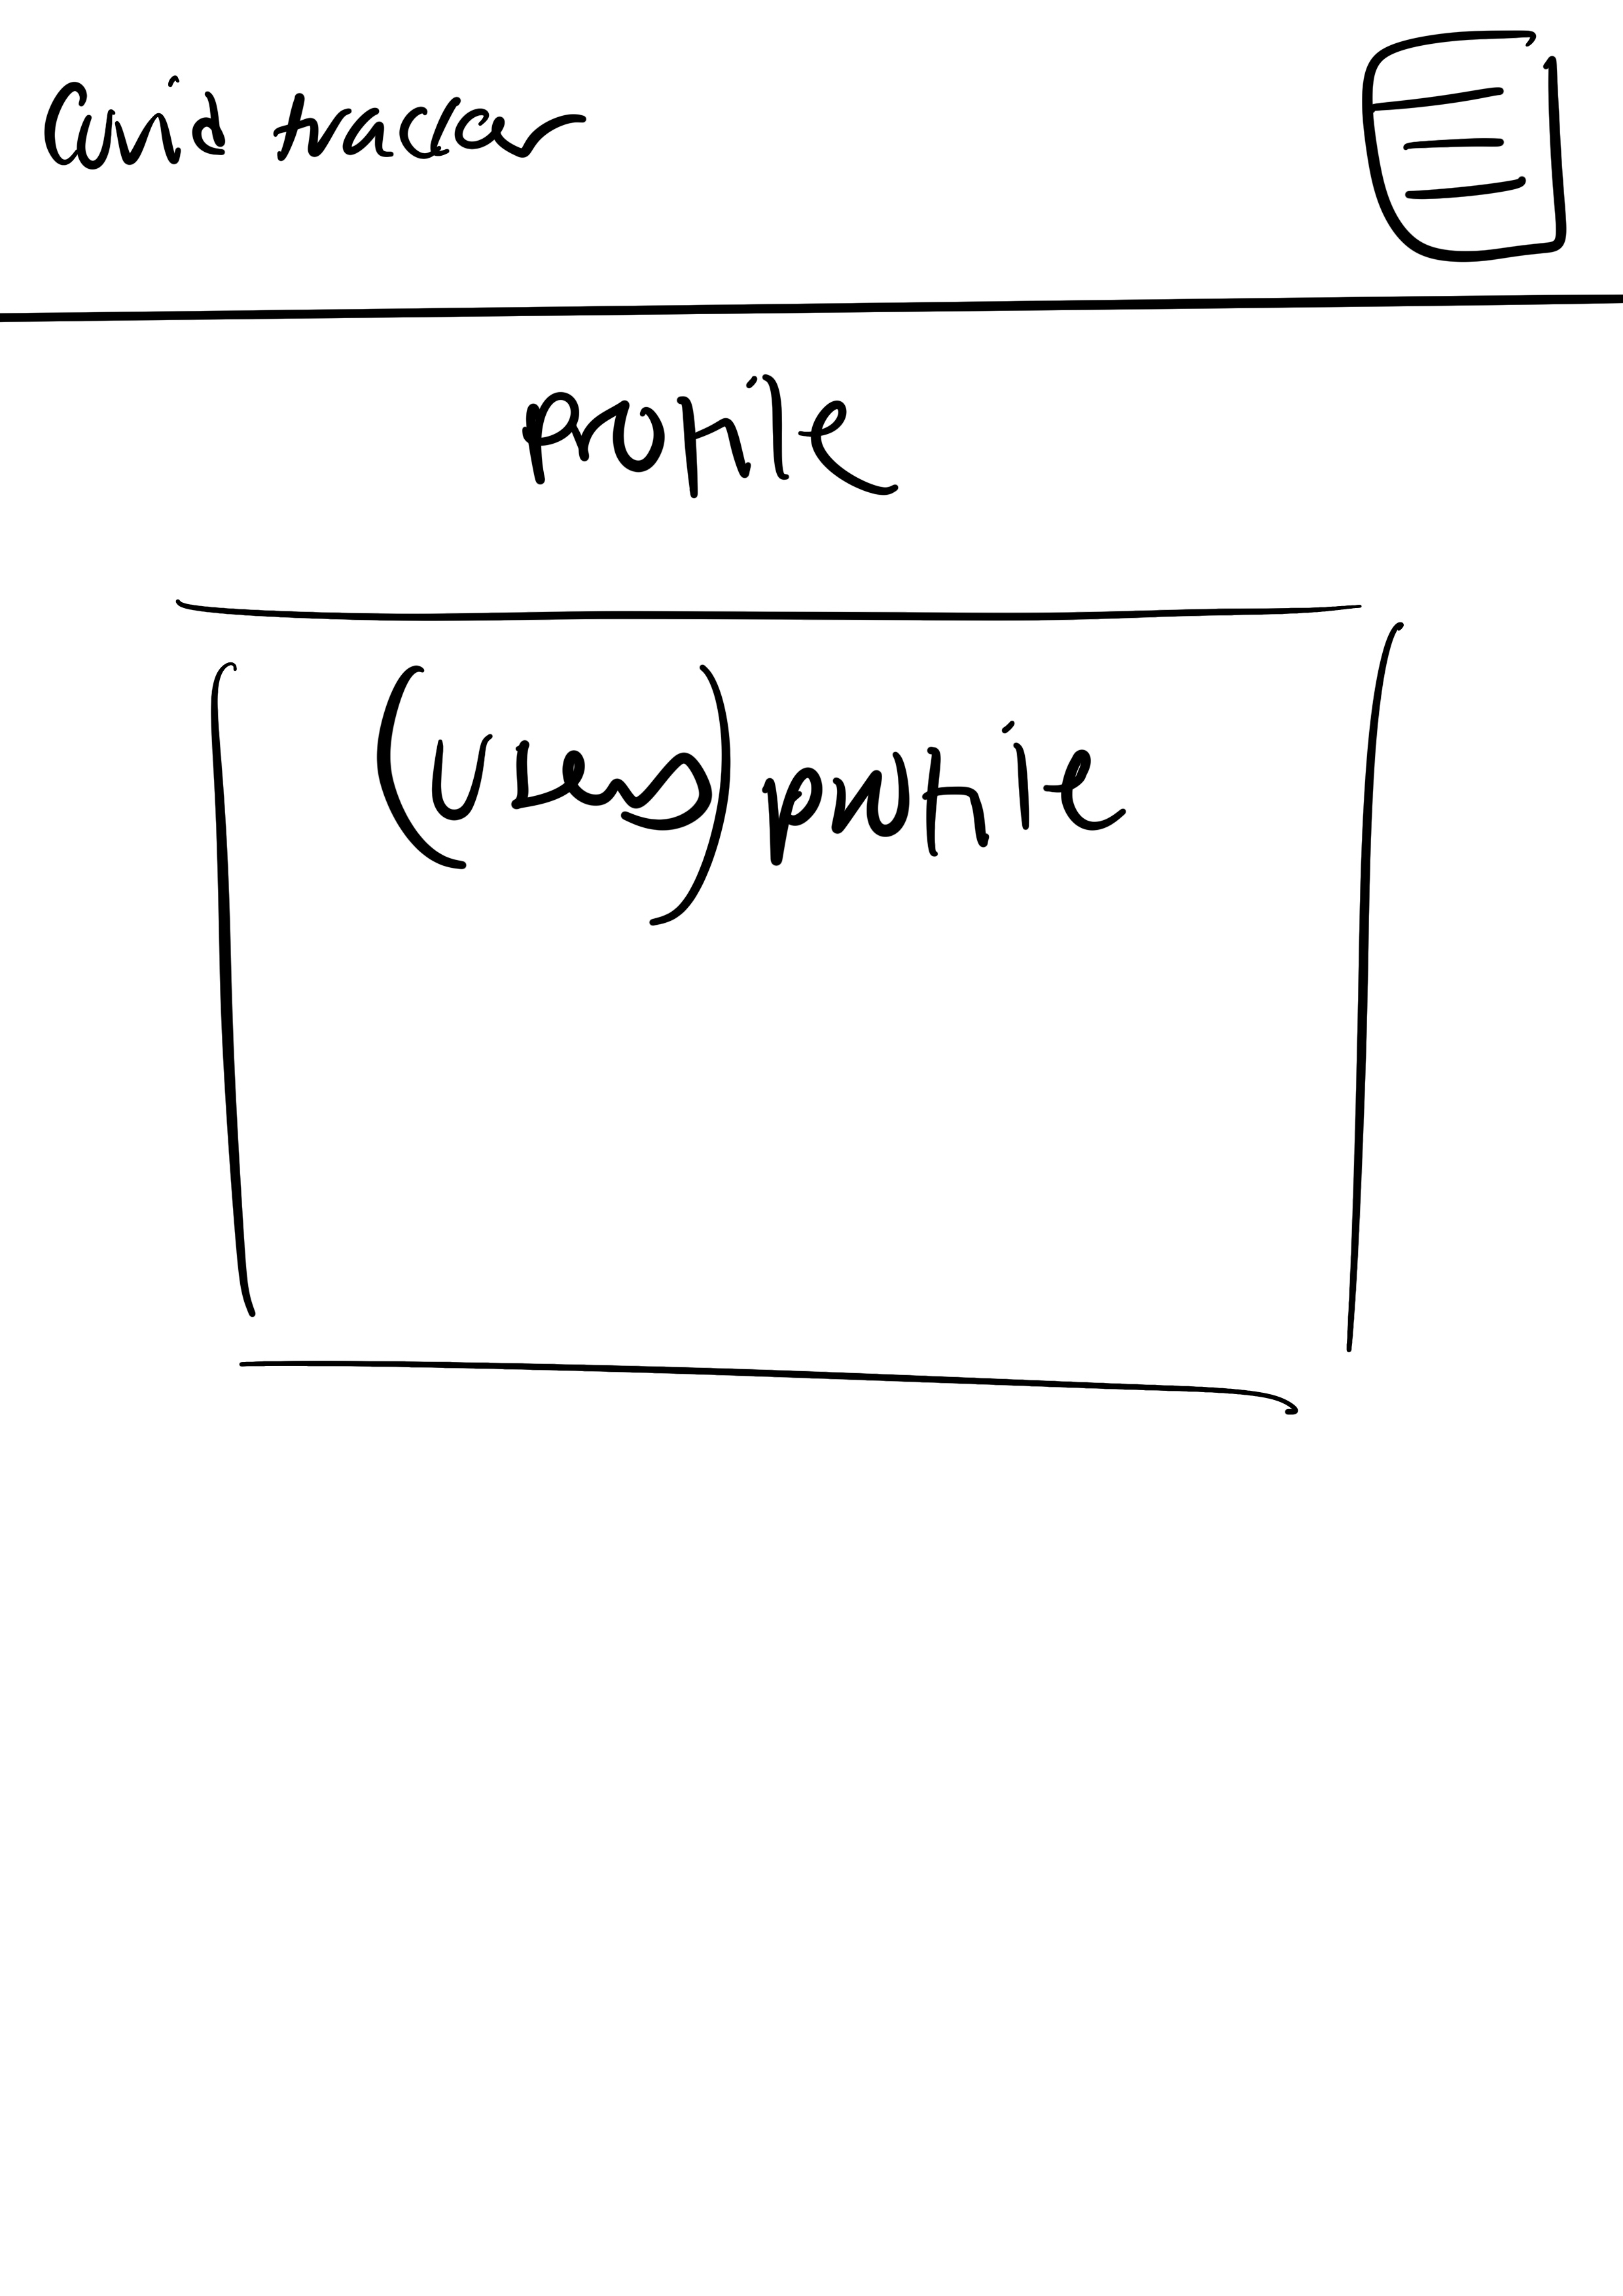 Covid tracker
Profile
(Users) profile